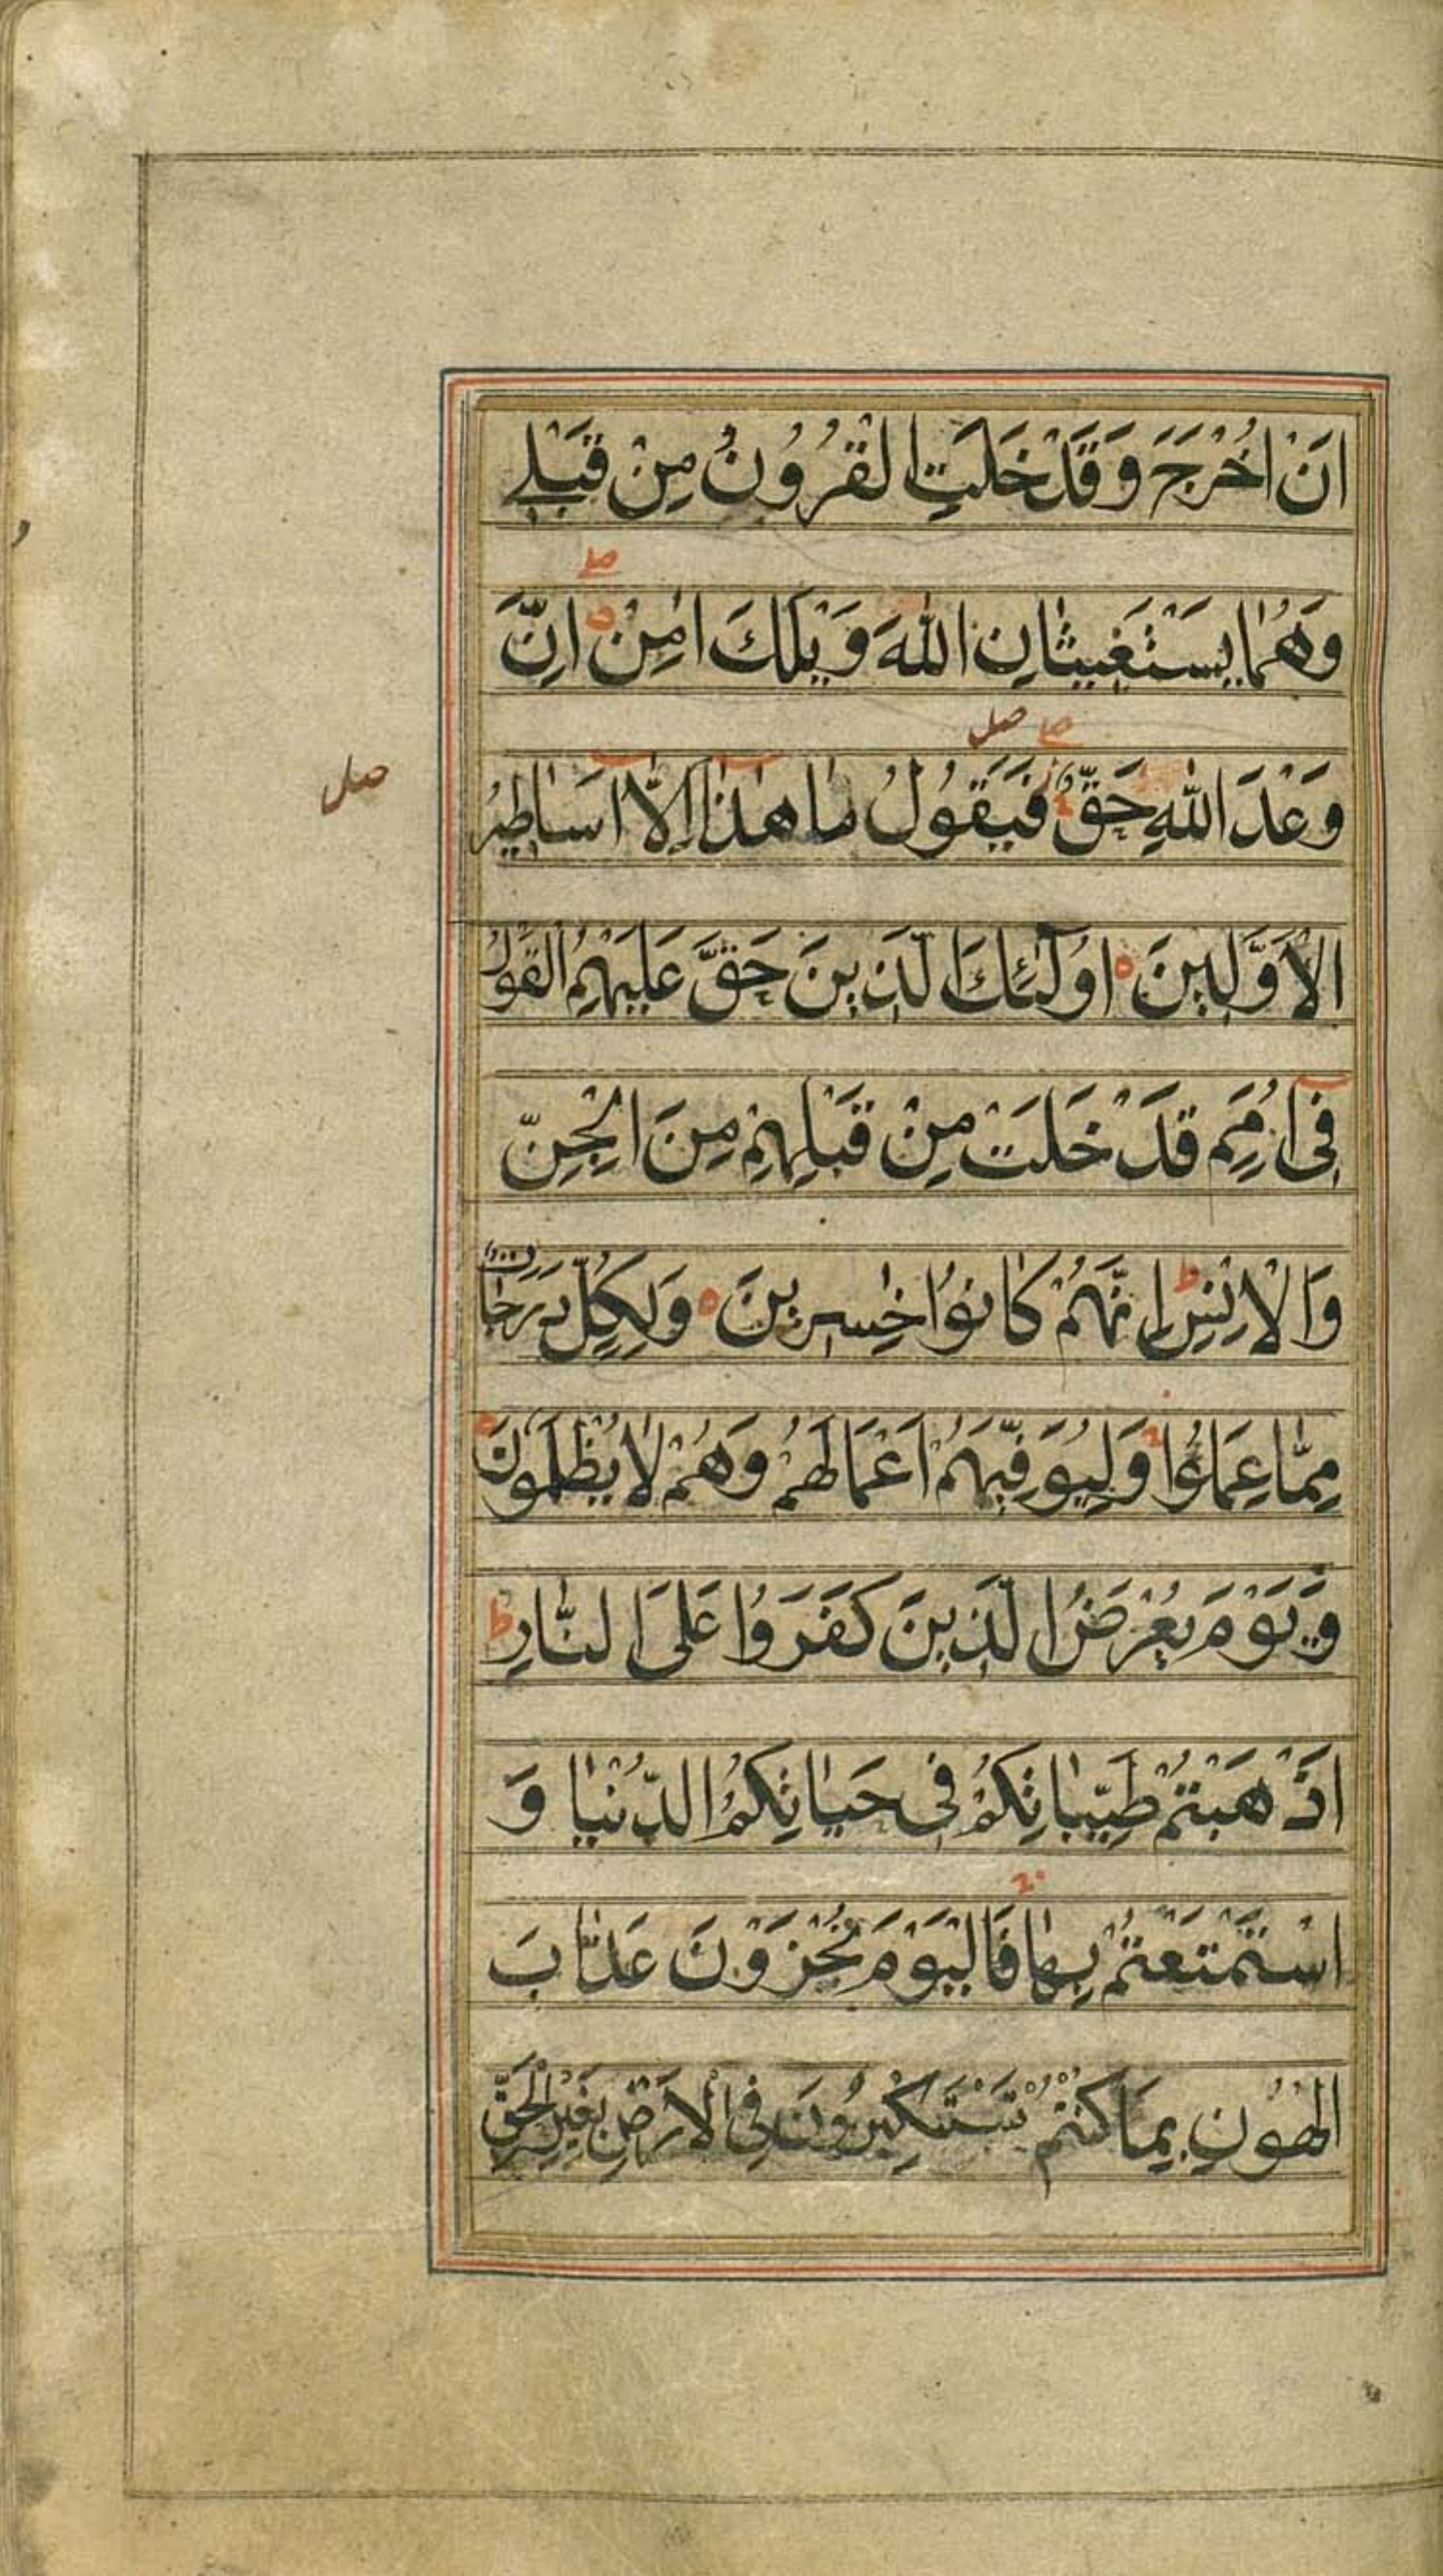 اَنْ اُخْرَجَ وَقَدْ خَلَتِ الْقُرُونُ مِنْ قَبْلِی
وَهُمٰا یَسْتَغیثٰانِ اللهَ وَیْلَكَ اٰمِنْ اِنَّ
صلے
وَعْدَ اللهِ حَقٌّ فَیَقُولُ مٰا هٰذٰا اِلّٰا اَسٰاطیرُ
صلے صل
صل
الْاَوَّلینَ اُولٰئِكَ الَّذینَ حَقَّ عَلَیْهِمُ الْقَوْلُ
فی اُمَمٍ قَدْ خَلَتْ مِنْ قَبْلِهِمْ مِنَ الْجِنِّ
وَالْاِنْسِ ط اِنَّهُمْ كٰانُوا خٰسِرینَ وَلِكُلٍّ دَرَجٰاتٌ
مِمّٰا عَمِلُوا وَلِیُوَفِّیَهُمْ اَعْمٰالَهُمْ وَهُمْ لٰا یُظْلَمُونَ
وَیَوْمَ یُعْرَضُ الَّذینَ كَفَرُوا عَلَی النّٰارِ ط
اَذْهَبْتُمْ طَیِّبٰاتِكُمْ فی حَیٰاتِكُمُ الدُّنْیٰا وَ
اسْتَمْتَعْتُمْ بِهٰا فَالْیَوْمَ تُجْزَوْنَ عَذٰابَ
الْهُونِ بِمٰا كُنْتُمْ تَسْتَكْبِرُونَ فِی الْاَرْضِ بِغَیْرِ الْحَقِّ